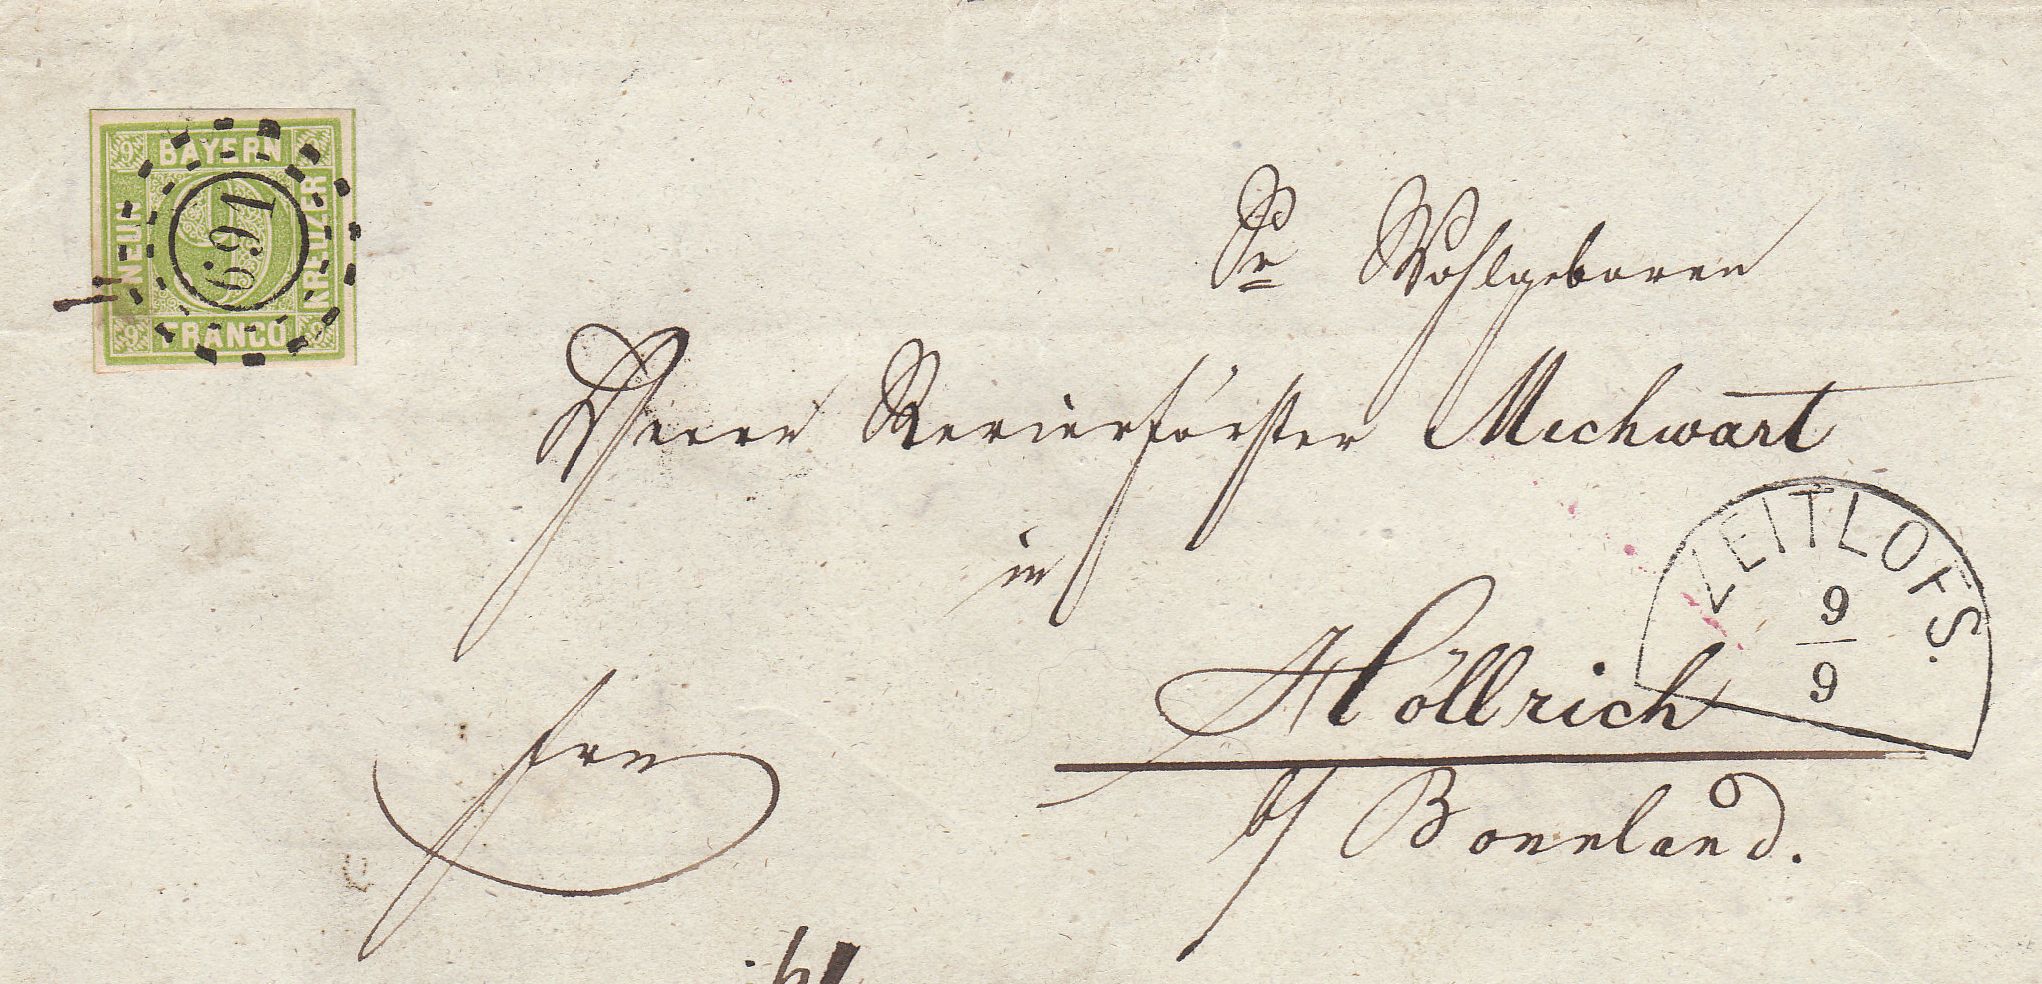 BAYERN
NEUN
KREUZER
FRANCO
9 9 9 9
691
Sr Wohlgeboren
Herrn Revierförster Mechwart
in
Höllrich
b/ Bonnland.
frei
ZEITLOFS.
9
9